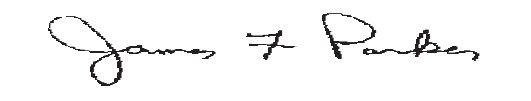 James F Parker